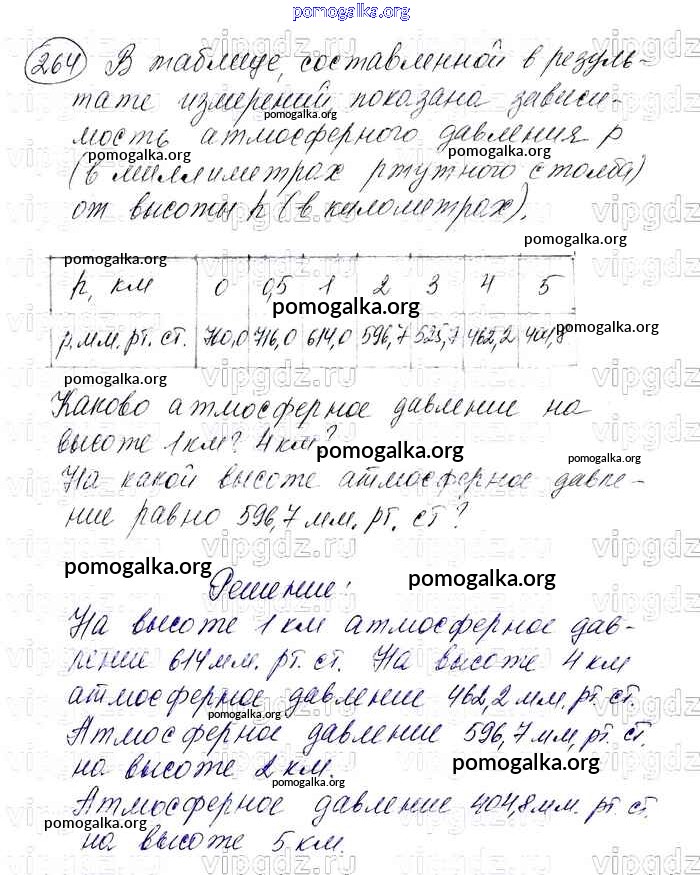 pomogalka.org
264 В таблице, составленной в резуль-
тате измерений показана зависи-
мость атмосферного давления p
(в миллиметрах ртутного столба)
от высоты h (в километрах).
h, км 0 0,5 1 2 3 4 5
p, мм. рт. ст. 760,0 716,0 614,0 596,7 525,7 462,2 404,8
Каково атмосферное давление на
высоте 1 км? 4 км?
На какой высоте атмосферное давле-
ние равно 596,7 мм. рт. ст?
Решение:
На высоте 1 км атмосферное дав-
ление 614 мм. рт. ст. На высоте 4 км
атмосферное давление 462,2 мм. рт. ст.
Атмосферное давление 596,7 мм, рт. ст.
на высоте 2 км.
Атмосферное давление 404,8 мм. рт. ст.
на высоте 5 км.